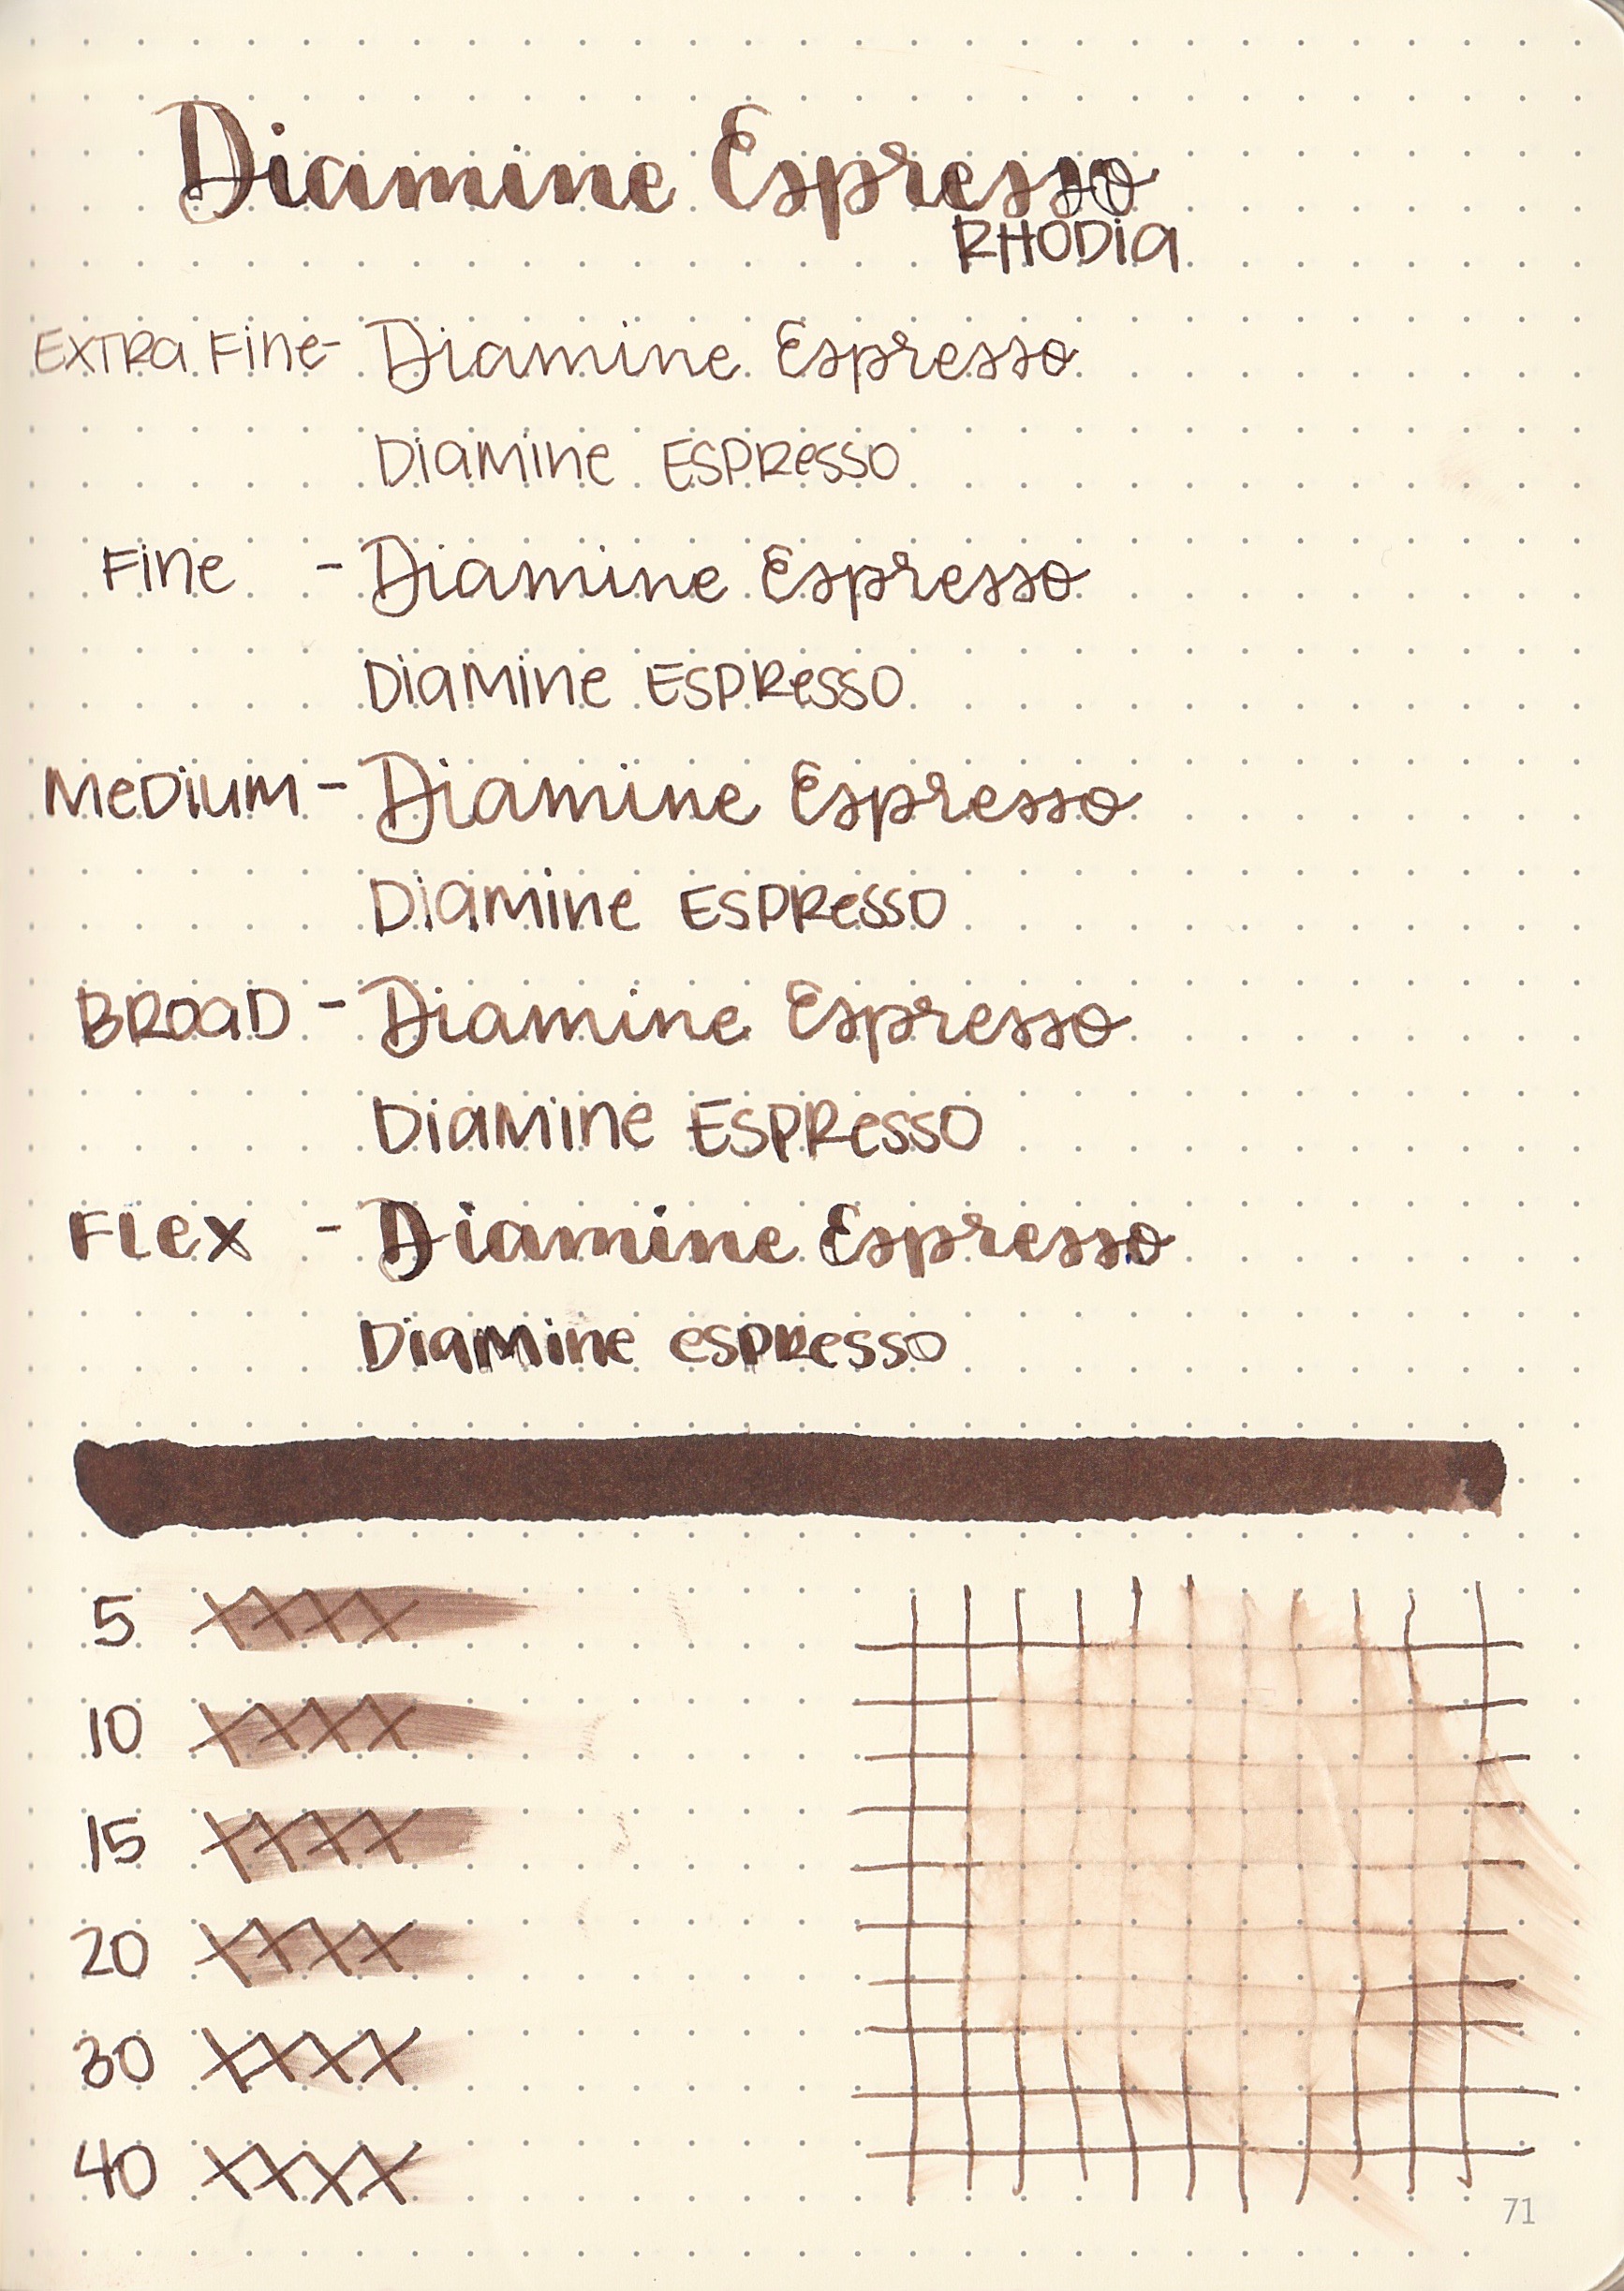 Diamine Espresso
RHODIA
EXTRA FINE - Diamine Espresso
DIAMINE ESPRESSO
FINE - Diamine Espresso
DIAMINE ESPRESSO
MEDIUM - Diamine Espresso
DIAMINE ESPRESSO
BROAD - Diamine Espresso
DIAMINE ESPRESSO
FLEX - Diamine Espresso
DIAMINE ESPRESSO
5 XXXX
10 XXXX
15 XXXX
20 XXXX
30 XXXX
40 XXXX
71